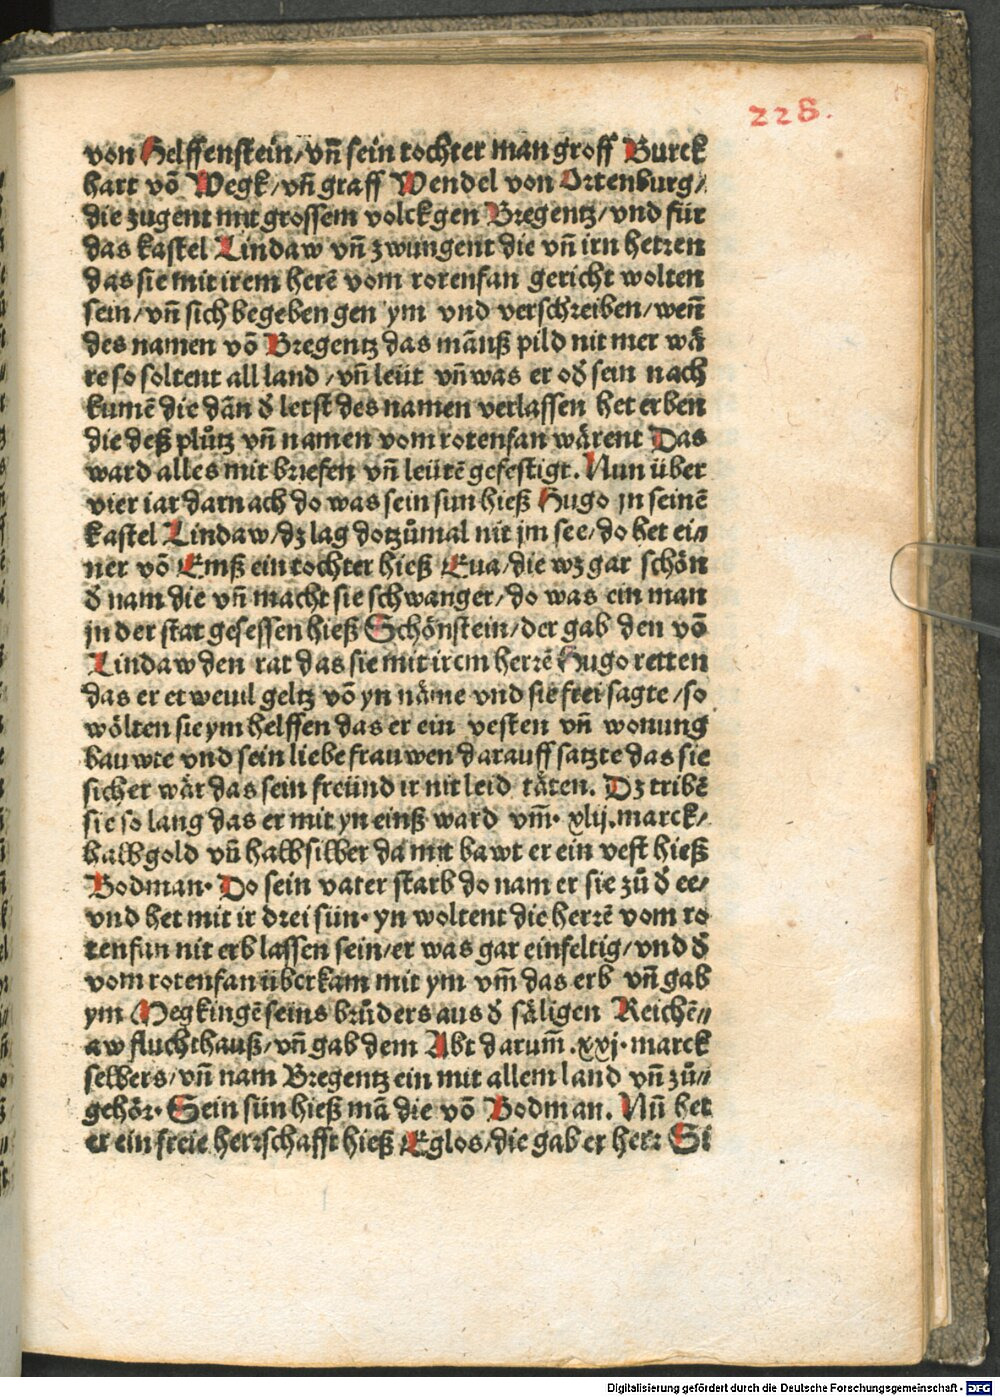 228.
von Helffenstein/vn̄ sein tochter man groff Burck
hart vō Wegk/vn̄ graff Wendel von Ortenburg/
die zugent mit grossem volck gen Bregentz/vnd für
das kastel Lindaw vn̄ zwungent die vn̄ irn herren
das sie mit irem herē vom rotenfan gericht wolten
sein/vn̄ sich begeben gen ym vnd verschreiben/wen̄
des namen vō Bregentz das mānß pild nit mer wä
re so soltent all land/vn̄ leüt vn̄ was er oď sein nach
kumē die dān ď letst des namen verlassen het erben
die deß plůtz vn̄ namen vom rotenfan wärent Das
ward alles mit briefen vn̄ leütē gefestigt. Nun über
vier iar darnach do was sein sun hieß Hugo jn seinē
kastel Lindaw/dz lag dotzůmal nit jm see/do het ei//
ner vō Emß ein tochter hieß Eua/die wz gar schön
ď nam die vn̄ macht sie schwanger/do was ein man
jn der stat gesessen hieß Schönstein/der gab den vō
Lindaw den rat das sie mit irem herrē Hugo retten
das er etweuil geltz vō yn näme vnd sie frei sagte/so
wölten sie ym helffen das er ein vesten vn̄ wonung
bauwte vnd sein liebe frauwen darauff satzte das sie
sicher wär das sein freünd ir nit leid täten. Dz tribē
sie so lang das er mit yn einß ward vm̄. xlij. marck/
halb gold vn̄ halb silber da mit bawt er ein vest hieß
Bodman. Do sein vater starb do nam er sie zů ď ee/
vnd het mit ir drei sün. yn woltent die herrē vom ro
tenfan nit erb lassen sein/er was gar einfeltig/vnd ď
vom rotenfan überkam mit ym vm̄ das erb vn̄ gab
ym Megkingē seins brůders aus ď säligen Reichē//
aw fluchthauß/vn̄ gab dem Abt darum̄ .xxj. marck
selbers/vn̄ nam Bregentz ein mit allem land vn̄ zů//
gehör. Sein sün hieß mā die vō Bodman. Nū het
er ein freie herrschafft hieß Eglos/die gab er herr Si
Digitalisierung gefördert durch die Deutsche Forschungsgemeinschaft - DFG